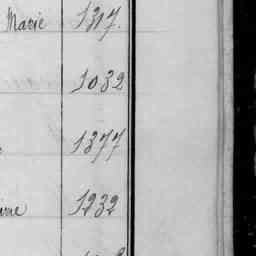 Marie 1317.
1032
1377
1232